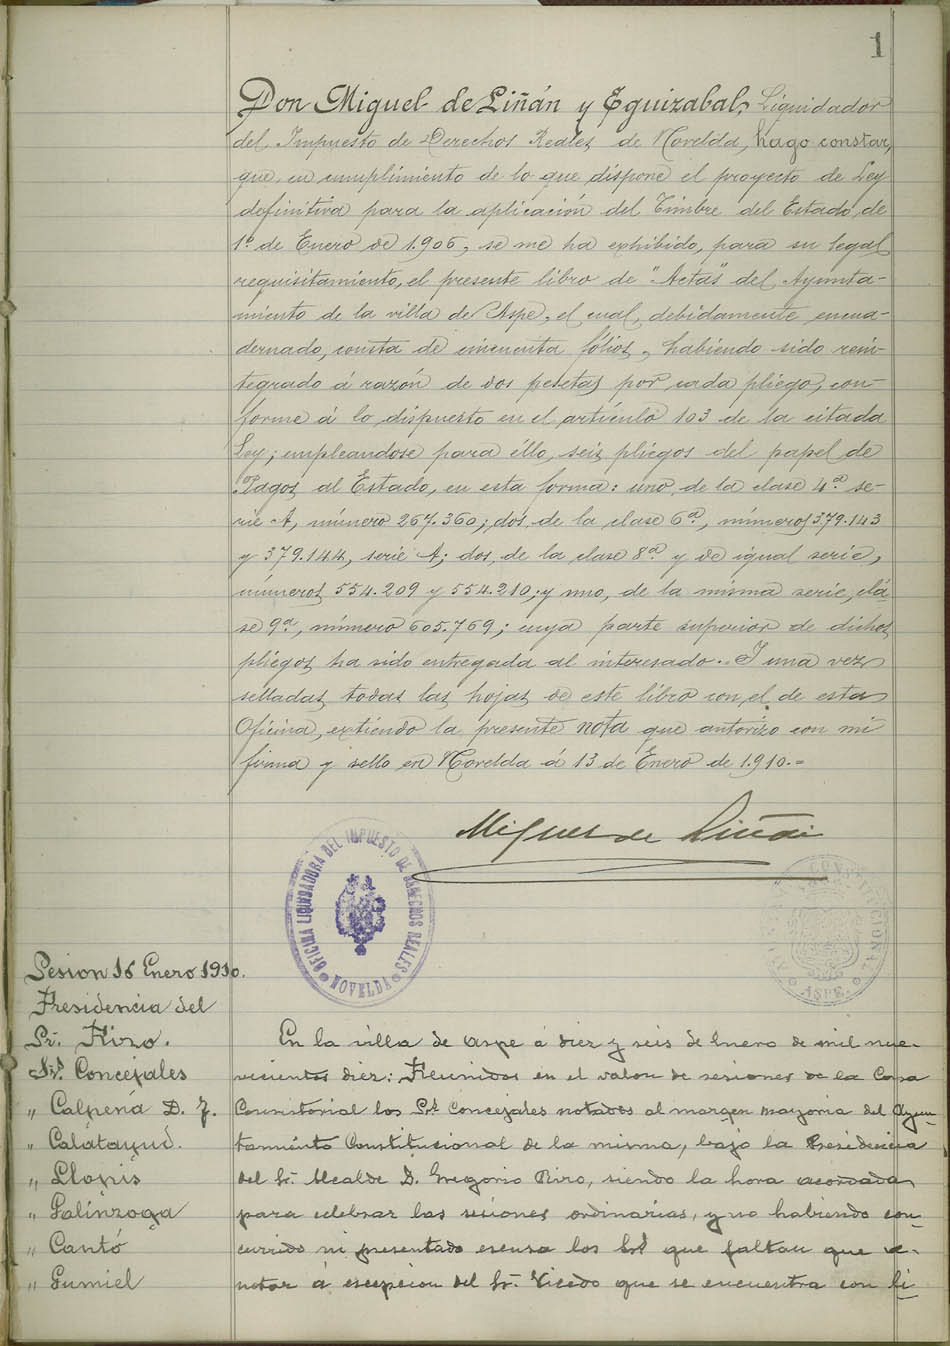 1
Don Miguel de Liñán y Eguizabal, Liquidador
del Impuesto de Derechos Reales de Novelda, hago constar,
que, en cumplimiento de lo que dispone el proyecto de Ley
definitiva para la aplicación del Timbre del Estado, de
1º de Enero de 1.906, se me ha exhibido, para su legal
requisitamiento, el presente libro de "Actas" del Ayunta-
miento de la villa de Aspe, el cual, debidamente encua-
dernado, consta de cincuenta fólios, habiendo sido rein-
tegrado á razón de dos pesetas por cada pliego, con-
forme á lo dispuesto en el artículo 103 de la citada
Ley; empleandose para éllo, seis pliegos del papel de
Pagos al Estado, en esta forma: uno, de la clase 4ª se-
rie A, número 267.360; dós, de la clase 6ª, números 379.143
y 379.144, serie A; dos, de la clase 8ª y de igual serie,
números 554.209 y 554.210; y uno, de la misma serie, clá
se 9ª, número 605.769; cuya parte superior de dichos
pliegos ha sido entregada al interesado.- Y una vez
selladas todas las hojas de este libro con el de esta
Oficina, extiendo la presente nota que autorizo con mi
firma y sello en Novelda á 13 de Enero de 1.910.=
Miguel de Liñán
OFICINA LIQUIDADORA DEL IMPUESTO DE DERECHOS REALES
NOVELDA
CONSTITUCIONAL
ASPE
Sesion 16 Enero 1910.
Presidencia del
Sr. Rizo.
Srs. Concejales
" Calpena D. J.
" Calatayud.
" Llopis
" Galinzoga
" Cantó
" Gumiel
En la villa de Aspe á diez y seis de Enero de mil nue-
vecientos diez: Reunidos en el salon de sesiones de la Casa
Consistorial los Srs Concejales notados al margen mayoria del Ayun-
tamiento Constitucional de la misma, bajo la Presidencia
del Sr. Alcalde D. Gregorio Rizo, siendo la hora acordada
para celebrar las sesiones ordinarias, y no habiendo con-
currido ni presentado escusa los Srs que faltan que a-
notar á escepcion del Sr. Vicedo que se encuentra con li-